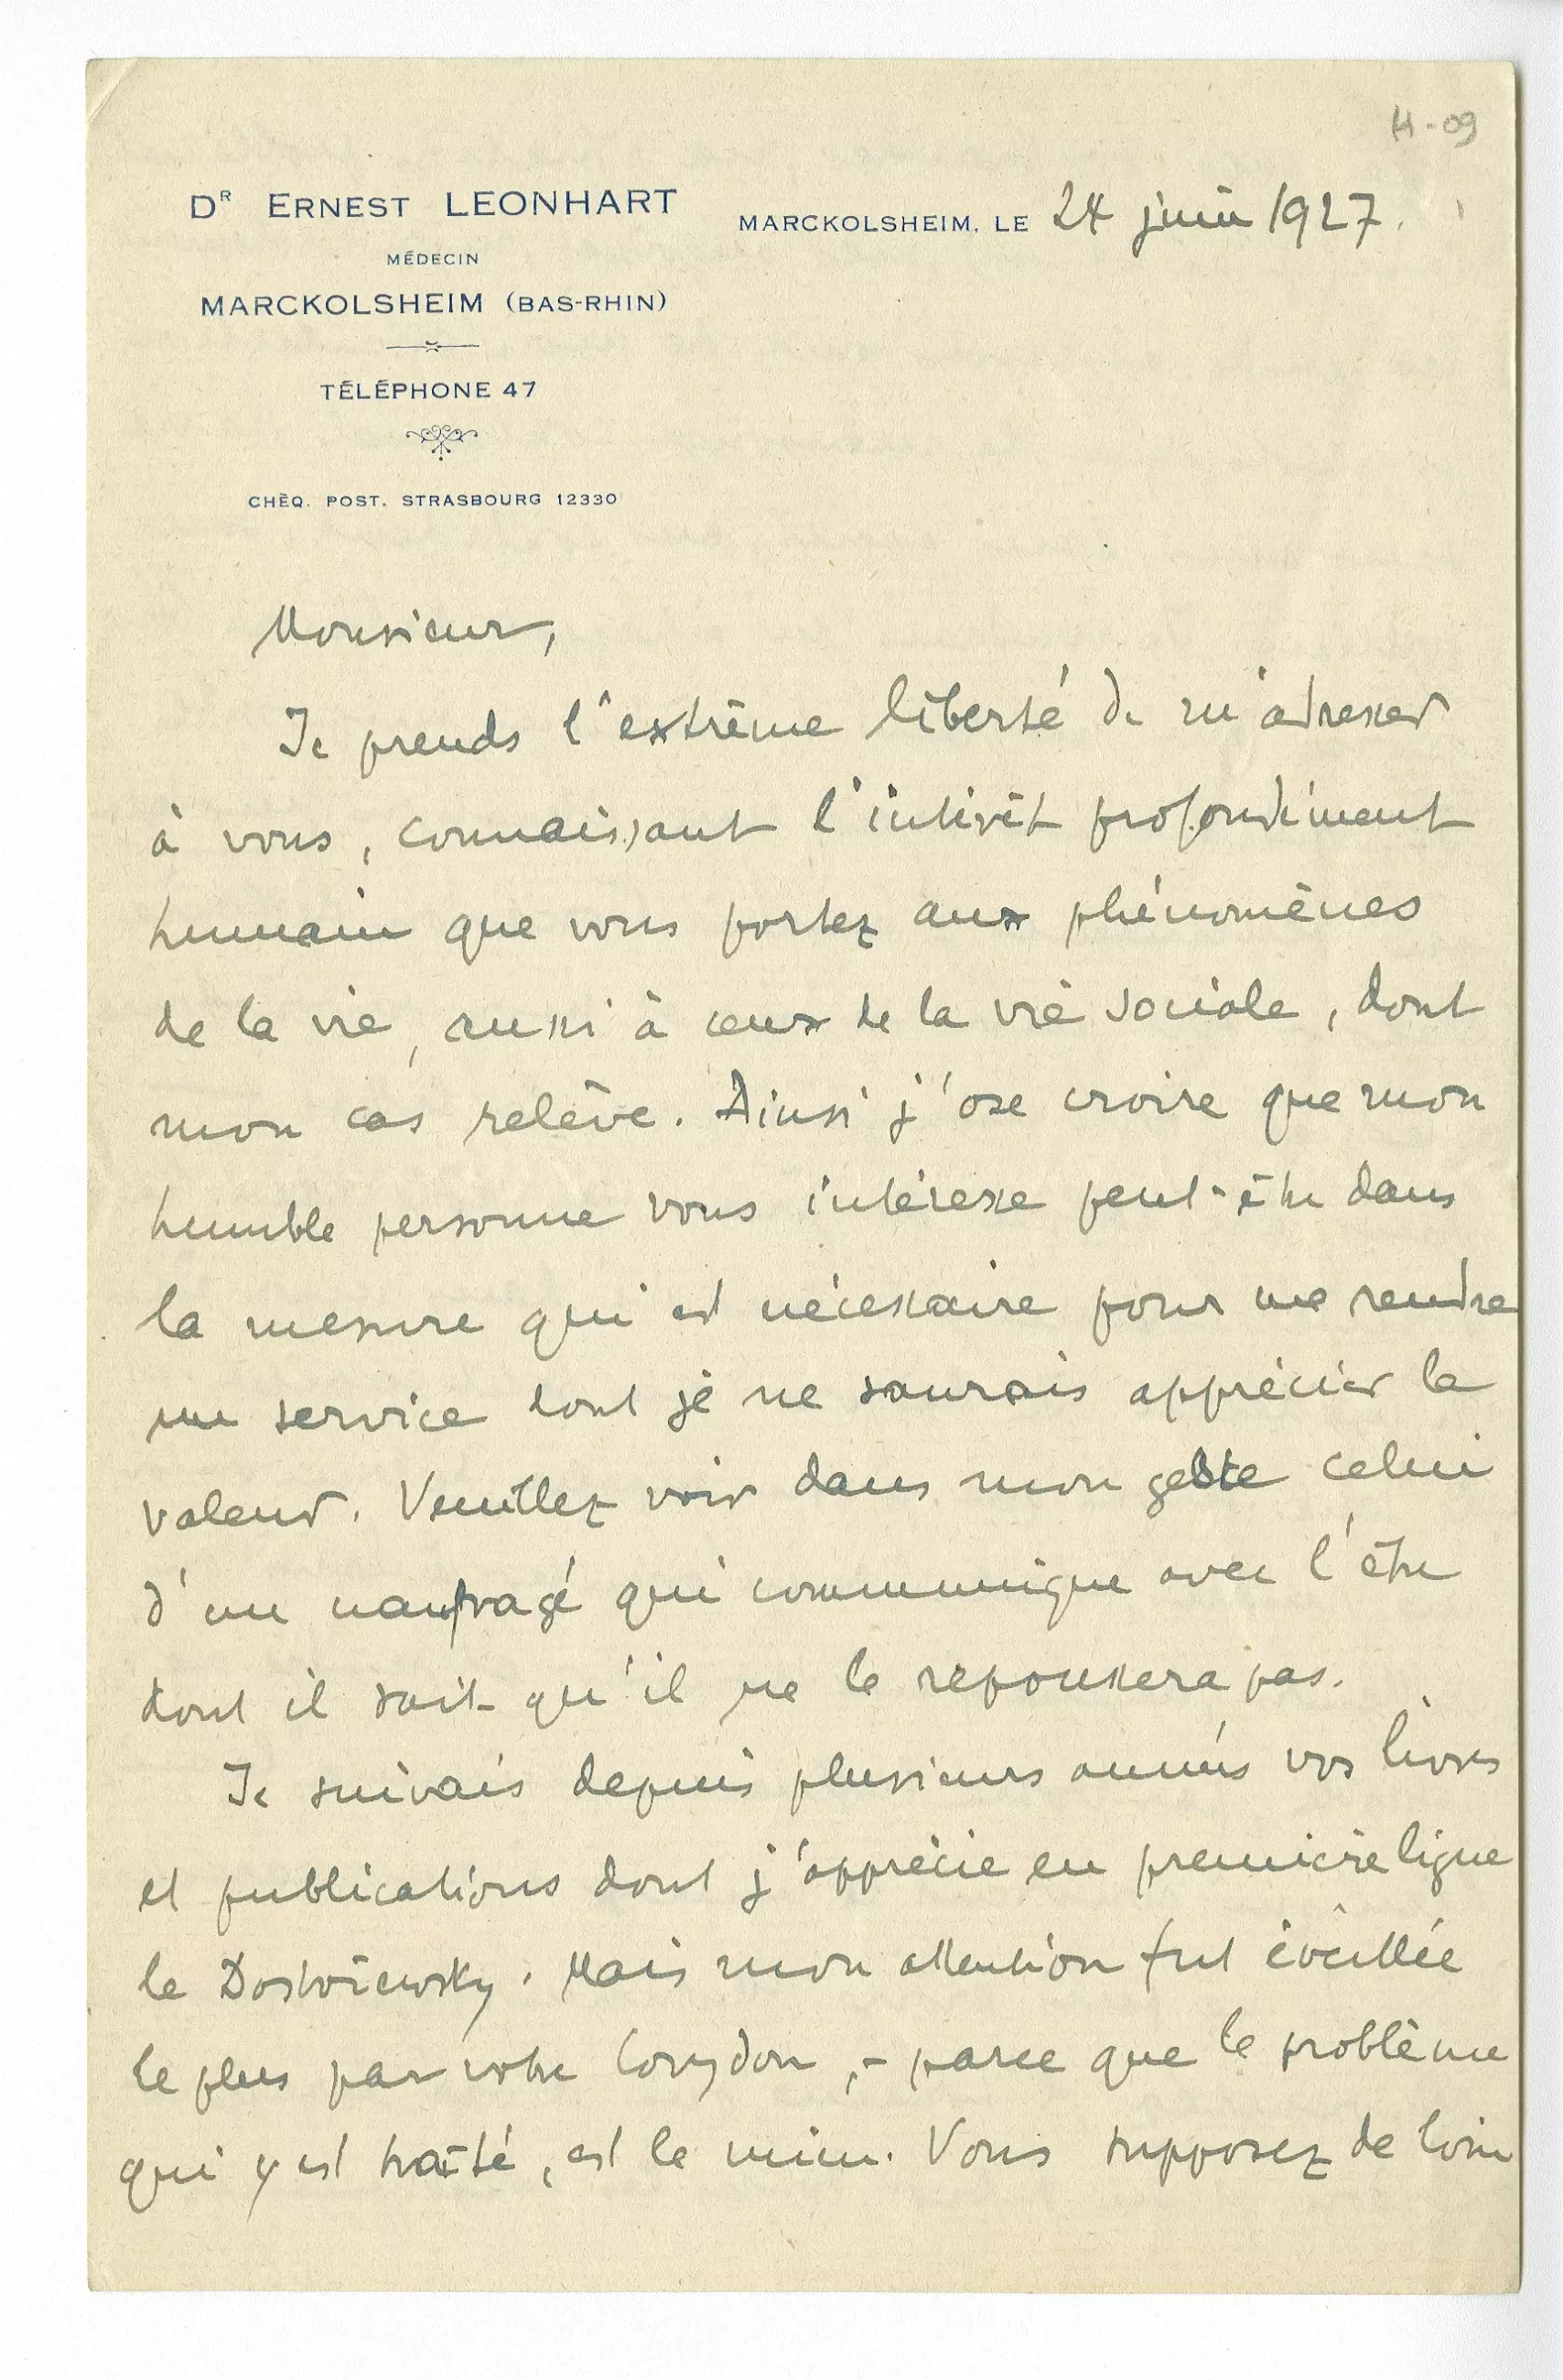 H-09
Dᴿ ERNEST LEONHART
MÉDECIN
MARCKOLSHEIM (BAS-RHIN)
TÉLÉPHONE 47
CHÈQ. POST. STRASBOURG 12330
MARCKOLSHEIM, LE 24 juin 1927.
Monsieur,
Je prends l'extrême liberté de m'adresser
à vous, connaissant l'intérêt profondément
humain que vous portez aux phénomènes
de la vie, aussi à ceux de la vie sociale, dont
mon cas relève. Ainsi j'ose croire que mon
humble personne vous intéresse peut-être dans
la mesure qui est nécessaire pour me rendre
un service dont je ne saurais apprécier la
valeur. Veuillez voir dans mon geste celui
d'un naufragé qui communique avec l'être
dont il sait qu'il ne le repoussera pas.
Je suivais depuis plusieurs années vos livres
et publications dont j'apprécie en première ligne
le Dostoïewsky. Mais mon attention fut éveillée
le plus par votre Corydon, - parce que le problème
qui y est traité, est le mien. Vous supposez de loin